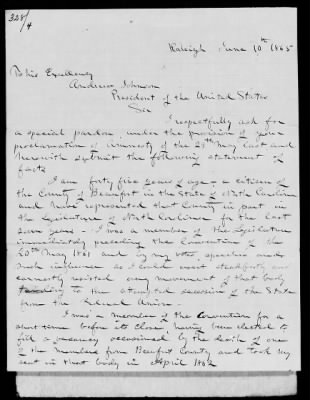 328/4
Raleigh June 10th 1865
To his Excellency
Andrew Johnson
President of the United States
Sir
I respectfully ask for
a special pardon, under the provision of your
proclamation of Amnesty of the 29th May last and
herewith submit the following statement of
facts
I am forty five years of age - a citizen of
the County of Beaufort in the State of North Carolina
and have represented that County in part in
the Legislature of North Carolina for the last
seven years - I was a member of the Legislature
immediately preceding the Convention of the
20th May 1861 and by my votes, speeches and
such influence as I could exert steadfastly and
earnestly resisted every movement of that body
tending to the attempted secession of the State
from the Federal Union.
I was a member of the Convention for a
short time before its close, having been elected to
fill a vacancy occasioned by the death of one
of the members from Beaufort County and took my
seat in that body in April 1862